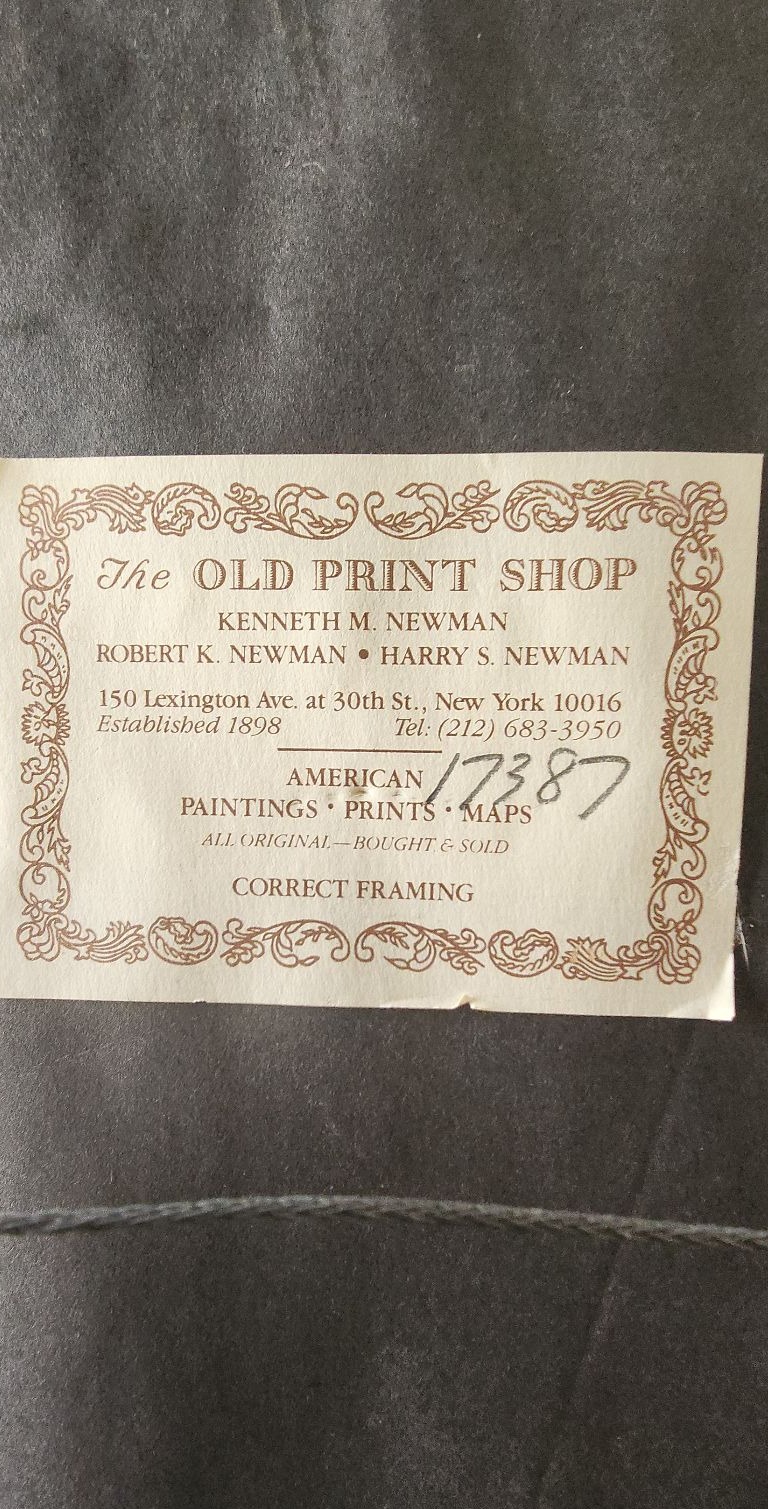 The OLD PRINT SHOP
KENNETH M. NEWMAN
ROBERT K. NEWMAN • HARRY S. NEWMAN
150 Lexington Ave. at 30th St., New York 10016
Established 1898 Tel: (212) 683-3950
AMERICAN 17387
PAINTINGS · PRINTS · MAPS
ALL ORIGINAL—BOUGHT & SOLD
CORRECT FRAMING